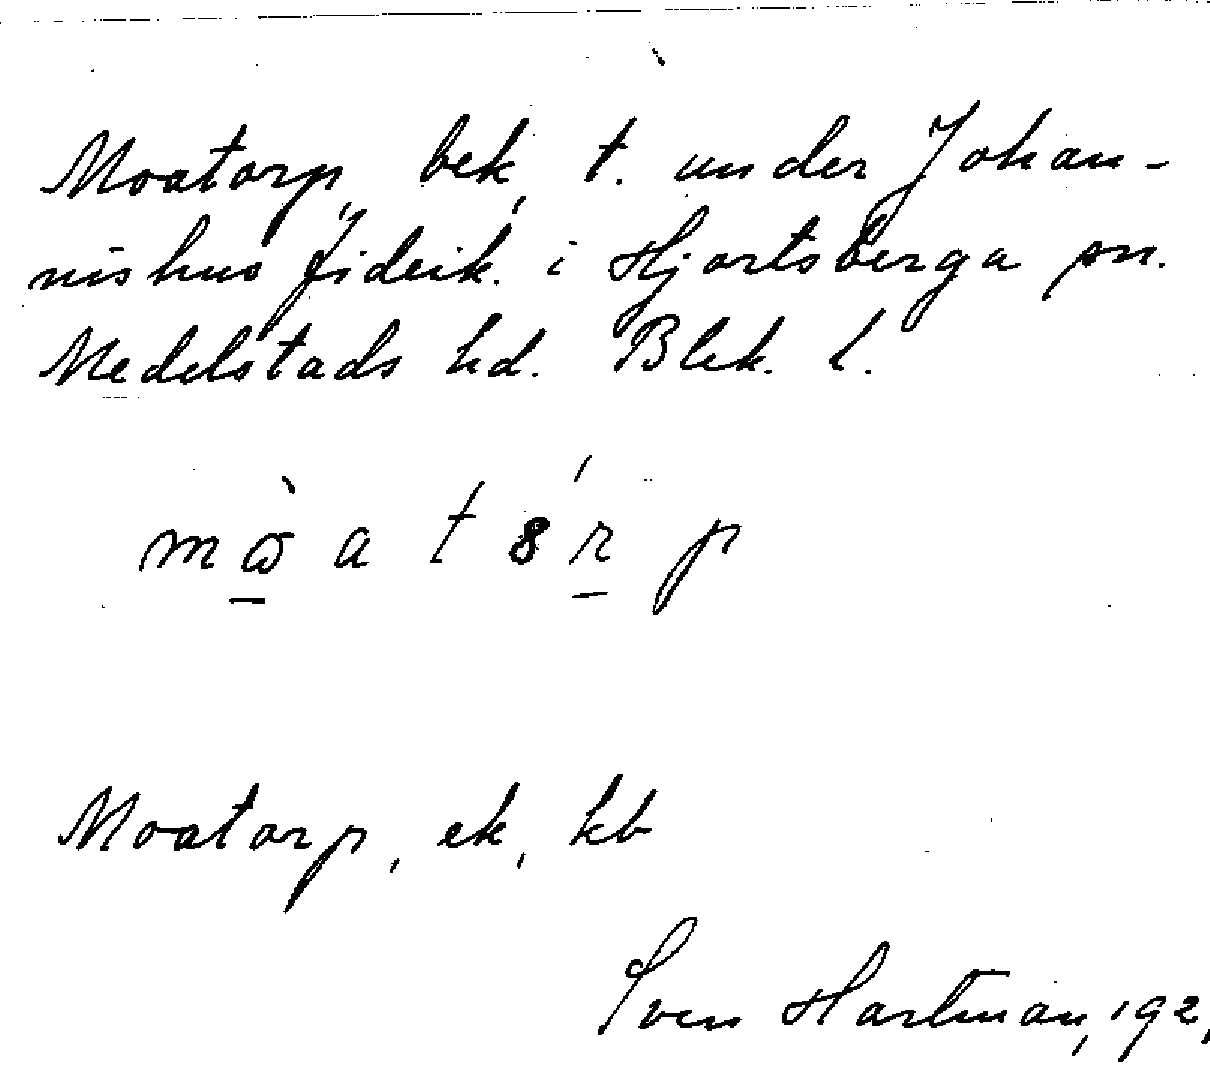 Moatorp, bek, t. under Johan-
nishus fideik. i Hjortsberga sn.
Medelstads hd. Blek. l.
Moatorp, ek, kb
Sven Hartman, 192